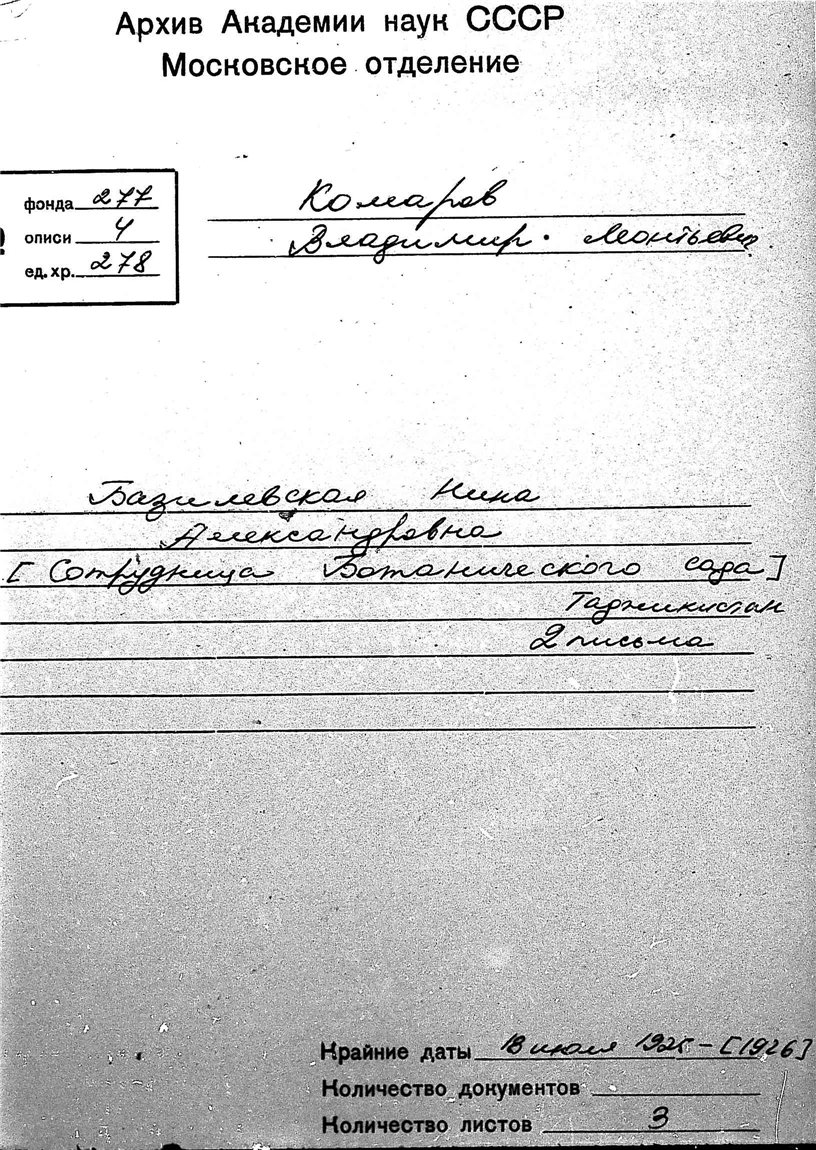 Архив Академии наук СССР
Московское отделение
фонда 277
описи 4
ед. хр. 278
Комаров
Владимир Леонтьевич
Базилевская Нина
Александровна
[Сотрудница Ботанического сада]
Таджикистан
2 письма
Крайние даты 18 июля 1925 – [1926]
Количество документов
Количество листов 3